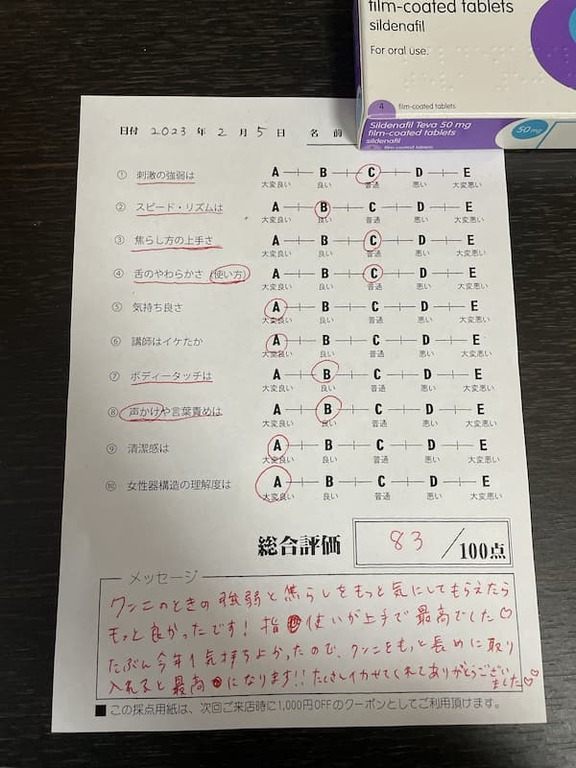 film-coated tablets
sildenafil
For oral use.
4 film-coated tablets
Sildenafil Teva 50 mg
film-coated tablets
sildenafil
50 mg
film-coated tablets
日付 2023 年 2 月 5 日 名前
① 刺激の強弱は A B C D E
大変良い 良い 普通 悪い 大変悪い
② スピード・リズムは A B C D E
大変良い 良い 普通 悪い 大変悪い
③ 焦らし方の上手さ A B C D E
大変良い 良い 普通 悪い 大変悪い
④ 舌のやわらかさ(使い方) A B C D E
大変良い 良い 普通 悪い 大変悪い
⑤ 気持ち良さ A B C D E
大変良い 良い 普通 悪い 大変悪い
⑥ 講師はイケたか A B C D E
大変良い 良い 普通 悪い 大変悪い
⑦ ボディータッチは A B C D E
大変良い 良い 普通 悪い 大変悪い
⑧ 声かけや言葉責めは A B C D E
大変良い 良い 普通 悪い 大変悪い
⑨ 清潔感は A B C D E
大変良い 良い 普通 悪い 大変悪い
⑩ 女性器構造の理解度は A B C D E
大変良い 良い 普通 悪い 大変悪い
総合評価 83 /100点
メッセージ
クンニのときの強弱と焦らしをもっと気にしてもらえたら
もっと良かったです!指使いが上手で最高でした♡
たぶん今年1気持ちよかったので、クンニをもっと長めに取り
入れると最高になります!!たくさんイカせてくれてありがとうござい
ました♡♡
■ この採点用紙は、次回ご来店時に1,000円OFFのクーポンとしてご利用頂けます。